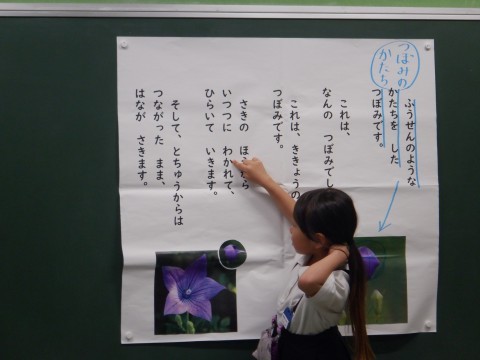 つぼみの
かたち
ふうせんのような
かたちを した
つぼみです。
これは、
なんの つぼみでし
これは、ききょうの
つぼみです。
さきの ほ
ら
いつつに わかれて、
ひらいて いきます。
そして、とちゅうからは
つながった まま、
はなが さきます。